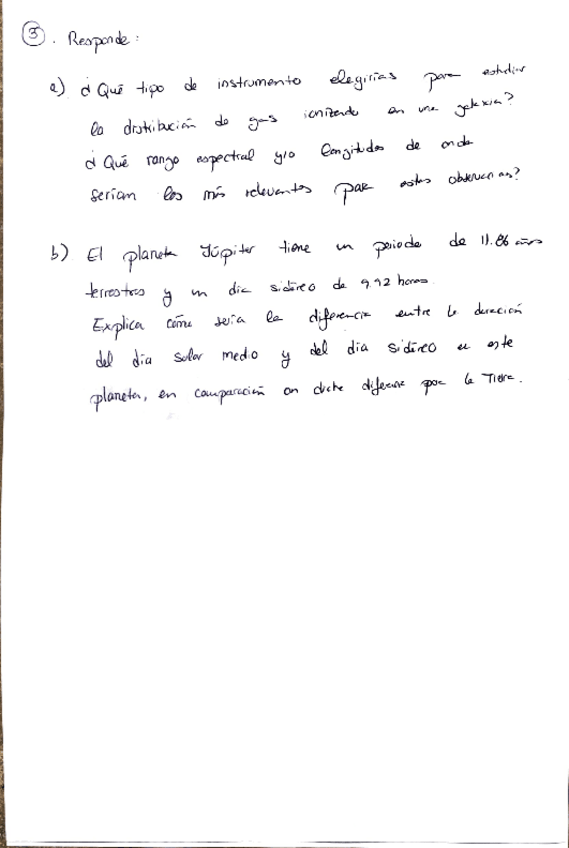 ③. Responde:
a) ¿Qué tipo de instrumento elegirías para estudiar
la distribución de gas ionizado en una galaxia?
¿Qué rango espectral y/o longitudes de onda
serían los más relevantes para estas observaciones?
b) El planeta Júpiter tiene un periodo de 11.86 años
terrestres y un día sidéreo de 9.92 horas.
Explica cómo sería la diferencia entre la duración
del día solar medio y del día sidéreo en este
planeta, en comparación con dicha diferencia para la Tierra.